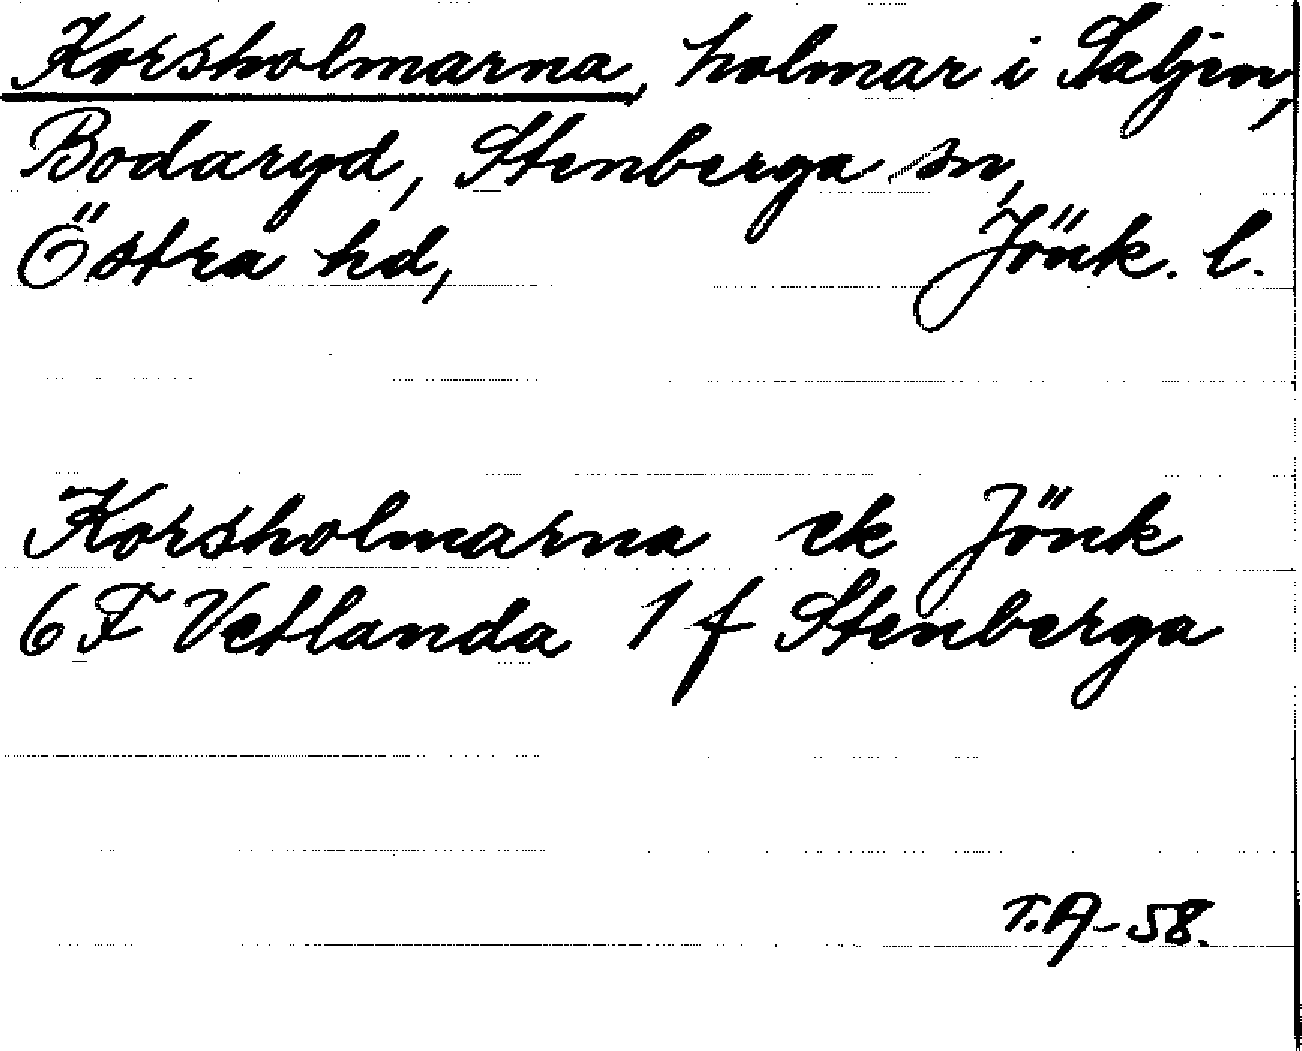 Korsholmarna, holmar i Saljen,
Bodaryd, Stenberga sn,
Östra hd, Jönk. l.
Korsholmarna ek Jönk
6 F Vetlanda 1 f Stenberga
T.A-58.